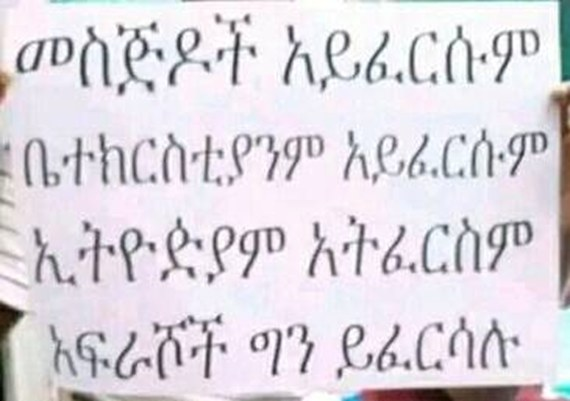 መስጅዶች አይፈርሱም
ቤተክርስቲያንም አይፈርሱም
ኢትዮድያም አትፈርስም
አፍራሾች ግን ይፈርሳሉ